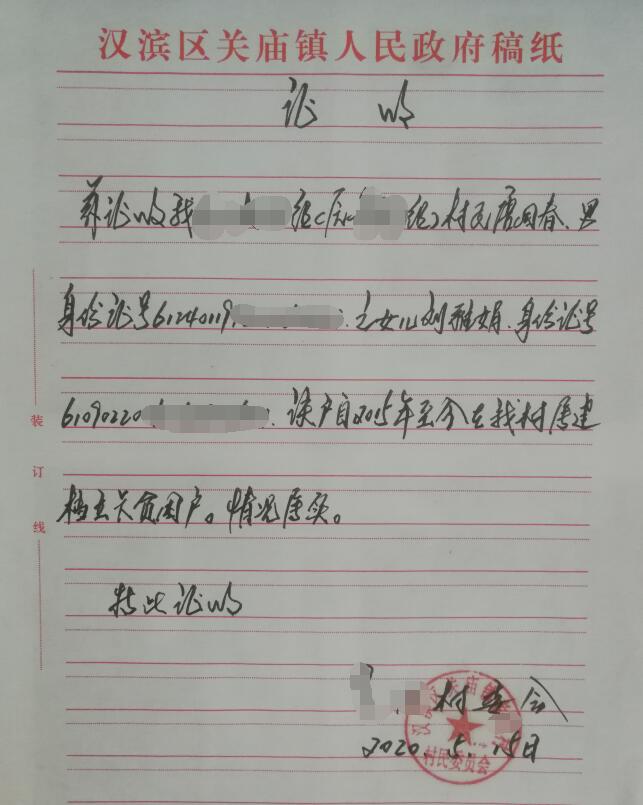 汉滨区关庙镇人民政府稿纸
证明
兹证明我组(原组)村民唐回春、男
身份证号61240119之女儿刘雅娟、身份证号
61090220该户自2015年至今在我村属建
档立卡贫困户。情况属实。
特此证明
村委会
2020.5.15日
装
订
线
汉滨区关庙镇
村民委员会